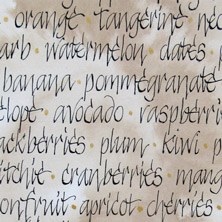 orange tangerine nec
arb watermelon dates p
banana pommegranate
elope avocado raspberri
ackberries plum kiwi p
itchie cranberries mang
onfruit apricot cherries